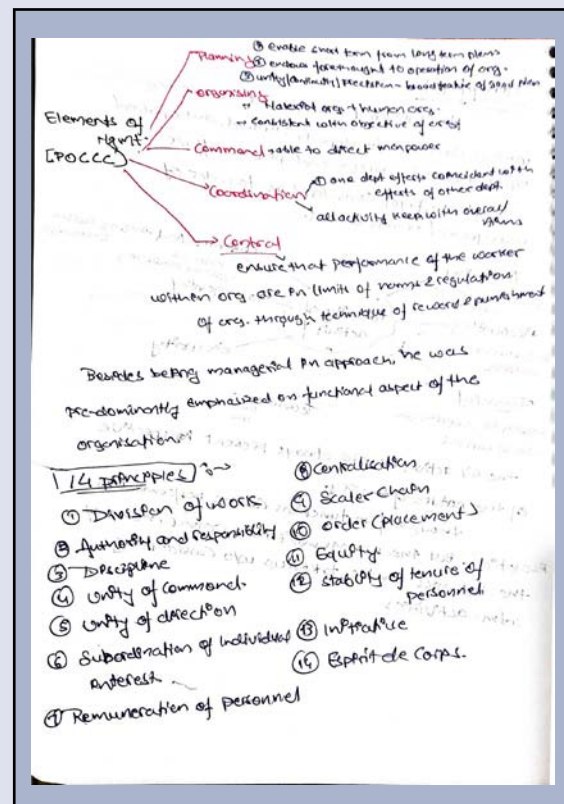 Planning → ① enable short term from long term plans
② endows forethought to operation of org.
③ unity/continuity/precision - 
organising
→ Material org. + human org.
→ consistent with objective of org
Elements of
Mgmt.
[POCCC]
Command → able to direct manpower
Coordination → ① one dept effects coincided with
effects of other dept.
all activity keep with overall
→ Control
ensure that performance of the worker
within org. are in limits of norms & regulation
of org. through technique of reward & punishment
Besides being managerial in approach, he was
pre-dominently emphasized on functional aspect of the
organisation
14 principles :→
① Division of work
② Authority and responsibility
③ Discipline
④ Unity of command.
⑤ unity of direction
⑥ Subordination of individual
interest
⑦ Remuneration of personnel
⑧ Centralisation
⑨ Scaler Chain
⑩ order (placement)
⑪ Equity
⑫ stability of tenure of
personnel
⑬ Initiative
⑭ Esprit de Corps.